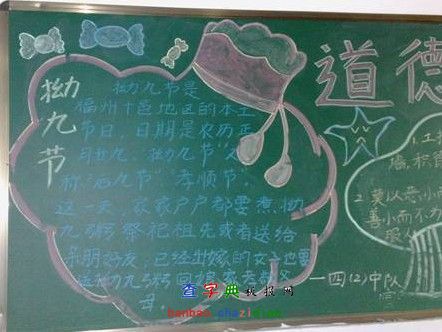 拗九节
拗九节是
福州十邑地区的本土
节日，日期是农历正
月廿九。拗九节"又
称"后九节""孝顺节"
这一天，家家户户都要煮拗
九粥，祭祀祖先或者送给
亲朋好友，已经出嫁的女子也要
送拗九粥回娘家
母。
道德
1.工
墙，积
2.莫以恶小
善小而不
服从
一四(2)中队
查字典板报网
banbao.chazidian